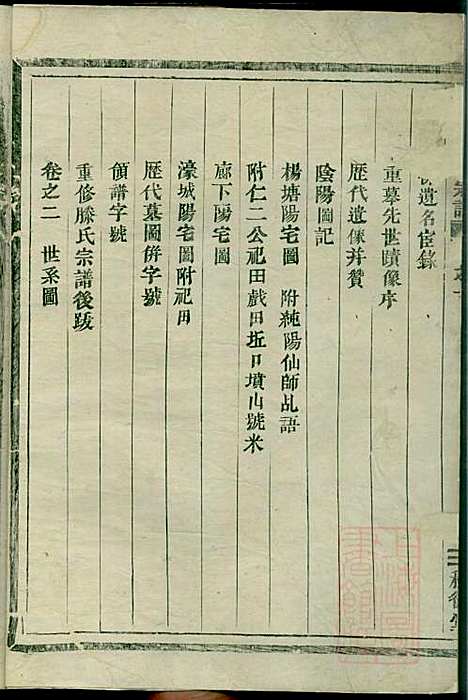 遺名宦錄
重摹先世蹟像序
歷代遺像并贊
陰陽圖記
楊塘陽宅圖 附純陽仙師乩語
附仁二公祀田戲田坵口墳山號米
廊下陽宅圖
濠城陽宅圖附祀田
歷代墓圖併字號
領譜字號
重修滕氏宗譜後跋
卷之二 世系圖
宗譜
上海圖書館藏